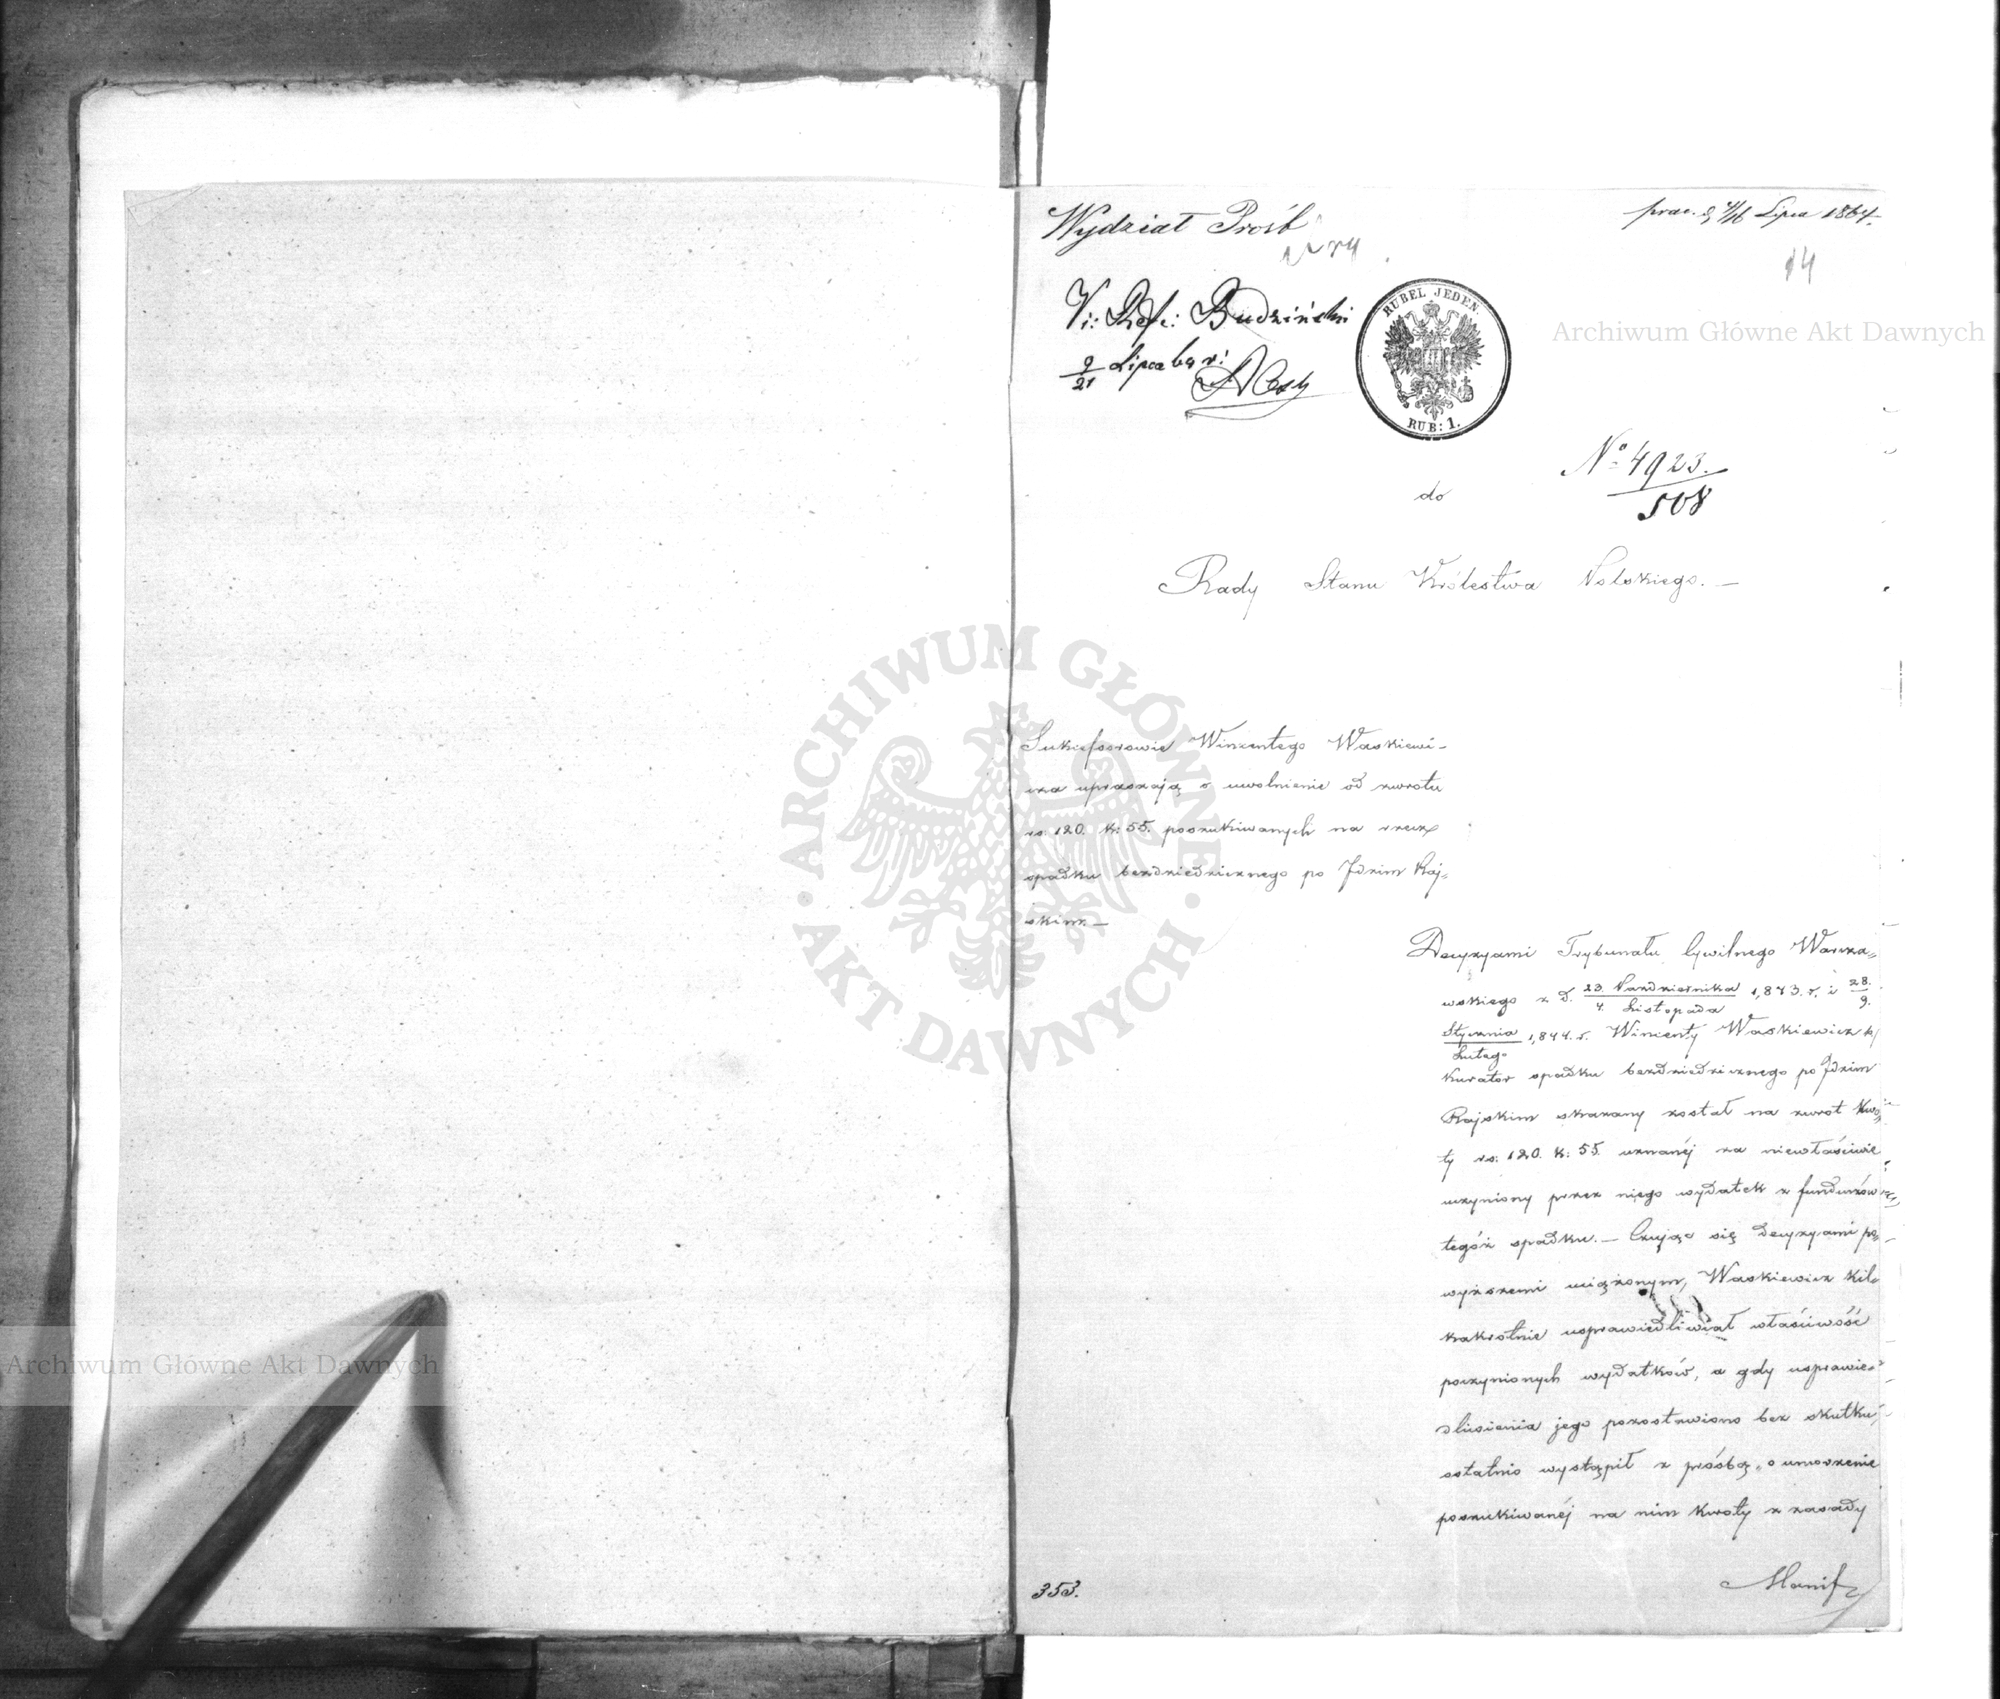 Wydział Próśb
prac. d. 4/16 Lipca 1864.
14
Vi: Refe: Budziński
9/21 Lipca bą r:
RUBEL JEDEN.
RUB: 1.
Archiwum Główne Akt Dawnych
No 4923.
508
do
Rady Stanu Królestwa Polskiego. —
Sukcessorowie Wincentego Waskiewi-
cza upraszają o uwolnienie od zwrotu
rs: 120. k: 55. poszukiwanych na rzecz
spadku bezdziedzicznego po Idzim Raj-
skim. —
ARCHIWUM GŁÓWNE AKT DAWNYCH
Decyzyami Trybunału Cywilnego Warsza-
wskiego z d. 23. Października / 4. Listopada 1,843. r. i 28. / 9.
Stycznia / Lutego 1,844. r. Wincenty Waskiewicz b/
Kurator spadku bezdziedzicznego po Idzim
Rajskim skazany został na zwrot kwo-
ty rs: 120. k: 55. uznanéj za niewłaściwie
uczyniony przez niego wydatek z funduszów
tegóż spadku. — Czując się decyzyami po-
wyższemi uciążonym, Waskiewicz kil-
kakrotnie usprawiedliwiał właściwość
poczynionych wydatków, a gdy usprawie-
dliwienia jego pozostawiono bez skutku,
ostatnio wystąpił z prośbą o umorzenie
poszukiwanéj na nim kwoty z zasady
Manif
353.
Archiwum Główne Akt Dawnych